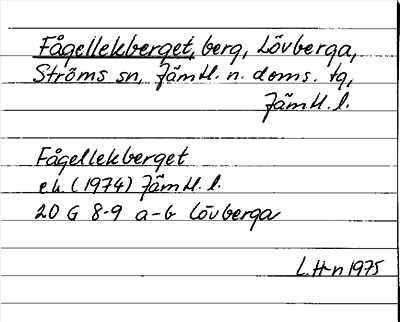 Fågellekberget, berg, Lövberga,
Ströms sn, Jämtl. n. doms. tg,
Jämtl. l.
Fågellekberget
e.k. (1974) Jämtl. l.
20 G 8-9 a-b Lövberga
L. H-n 1975